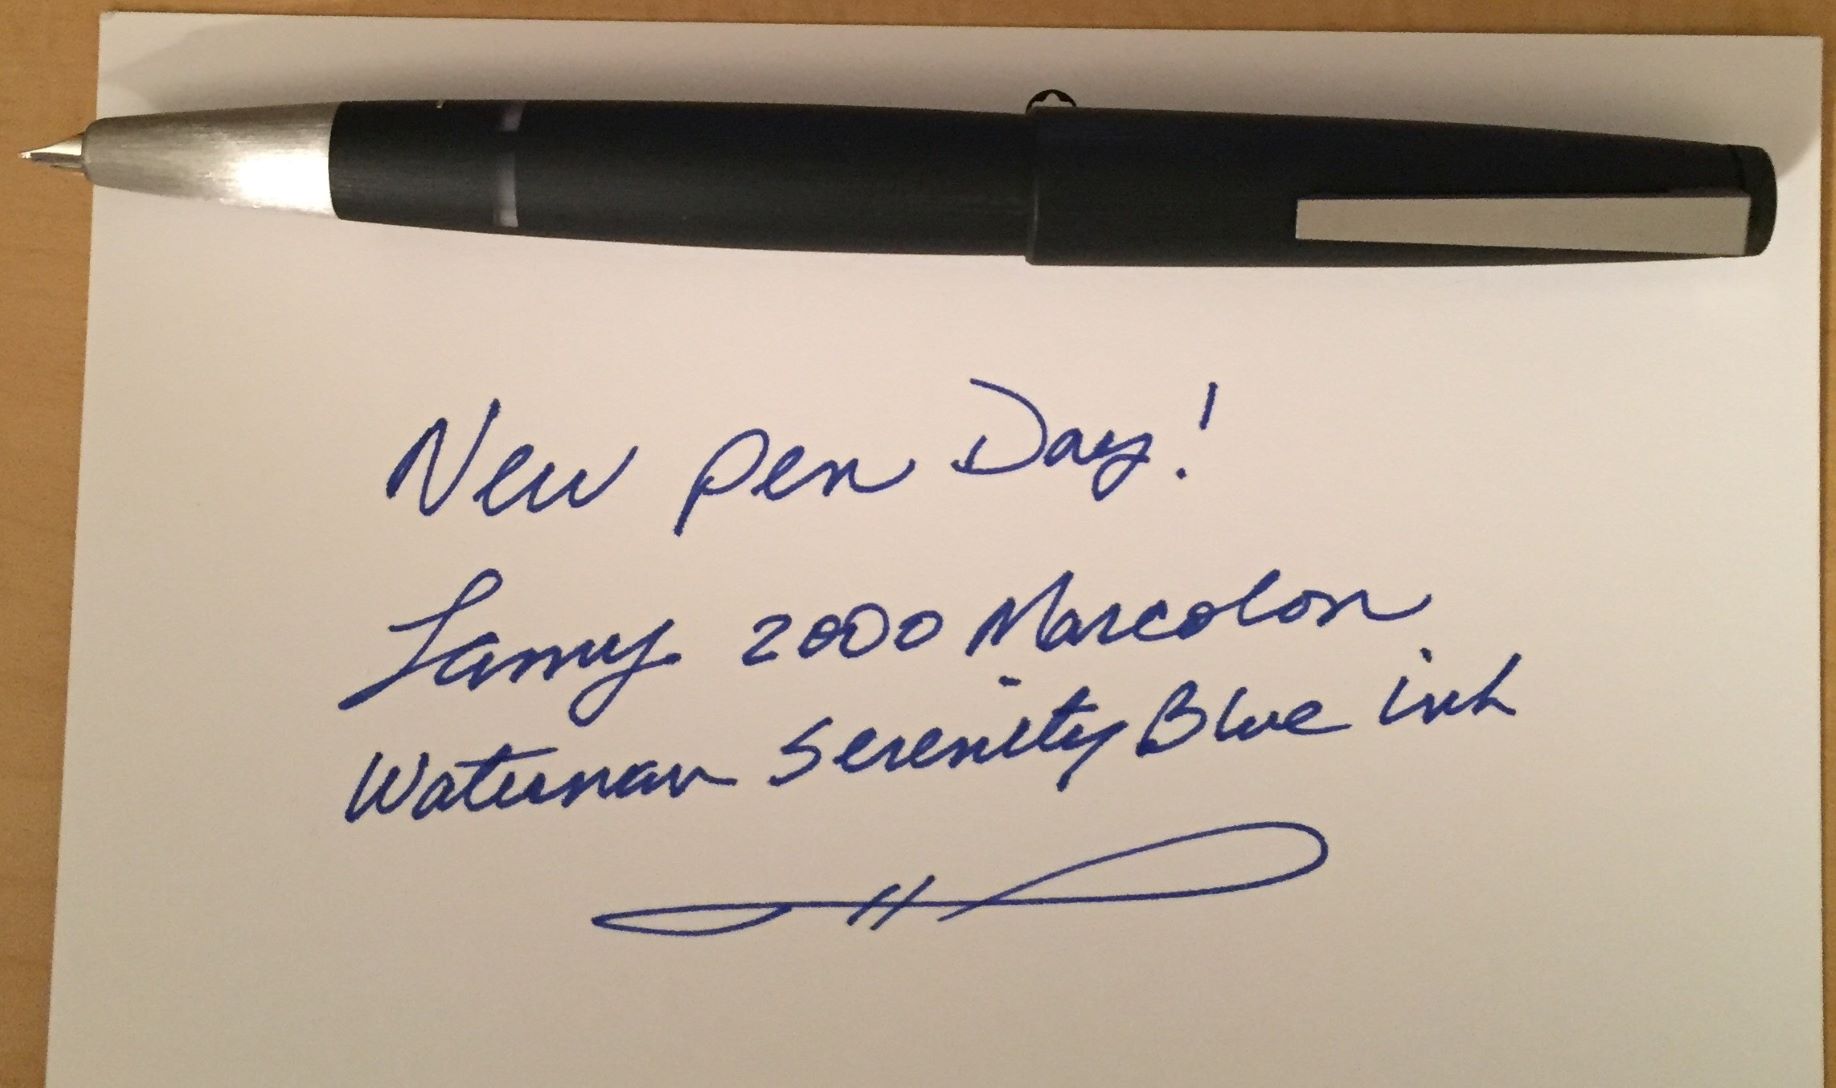 New Pen Day!
Lamy 2000 Marcolon
Waterman Serenity Blue ink